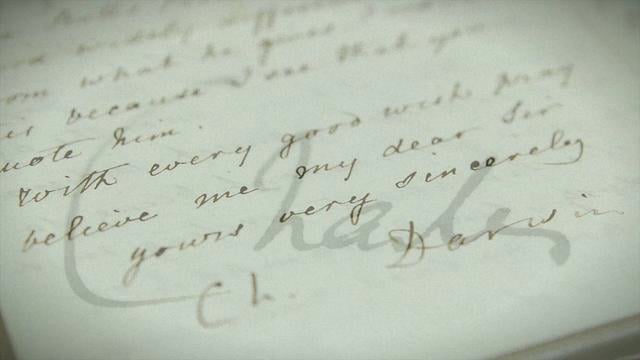 widely
from what he
is because I see that you
quote him.
With every good wish pray
believe me my dear Sir
yours very sincerely
Ch. Darwin
Charles